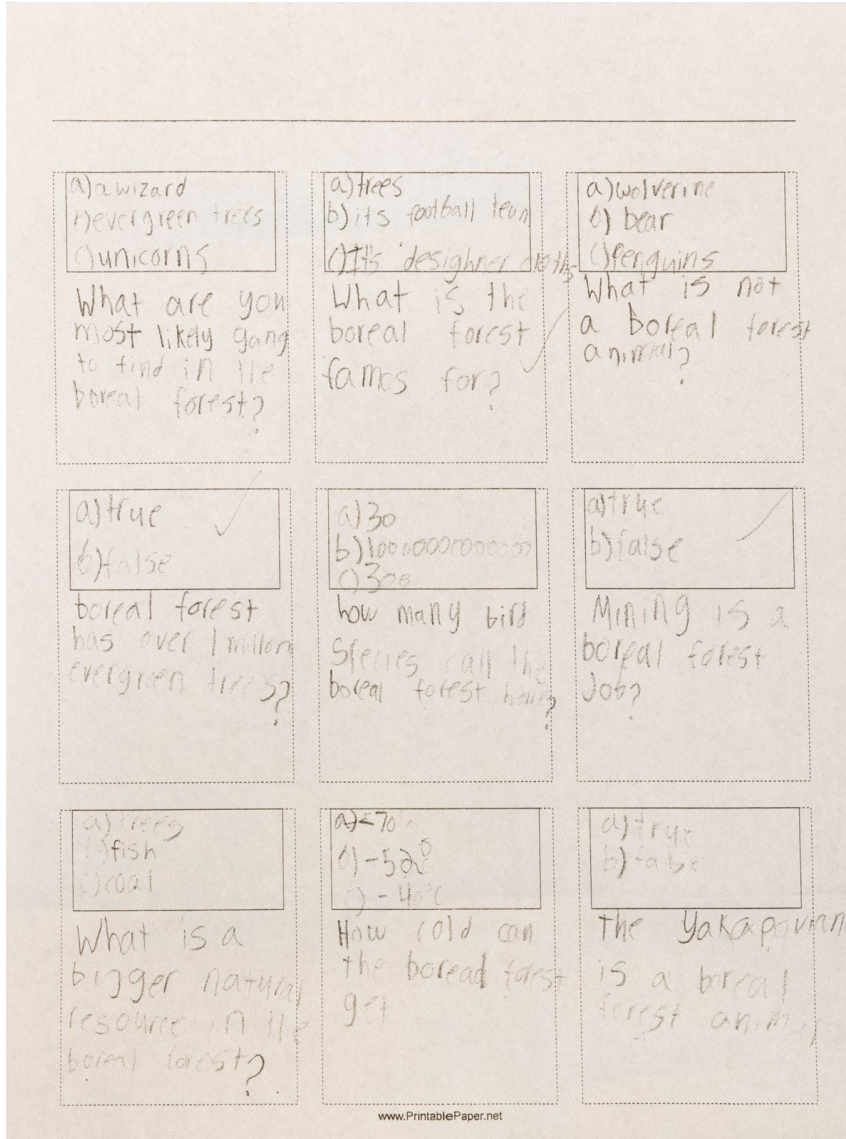 a) a wizard
b) evergreen trees
c) unicorns
What are you
most likely gang
to find in the
boreal forest?
a) trees
b) its football team
c) It's desighner cloths
What is the
boreal forest
famos for?
a) wolverine
b) bear
c) Penguins
What is not
a boreal forest
animal?
a) true
b) false
boreal forest
has over 1 millon
evergreen trees?
a) 30
b) 10000000000000
c) 300
how many bird
species call the
boreal forest home?
a) true
b) false
Mining is a
boreal forest
Job?
a) trees
b) fish
c) coal
What is a
bigger natural
resource in the
boreal forest?
b) -52°
c) -40°C
How cold can
the boread forest
get
a) true
b) false
the
is a boreal
forest animal
www.PrintablePaper.net